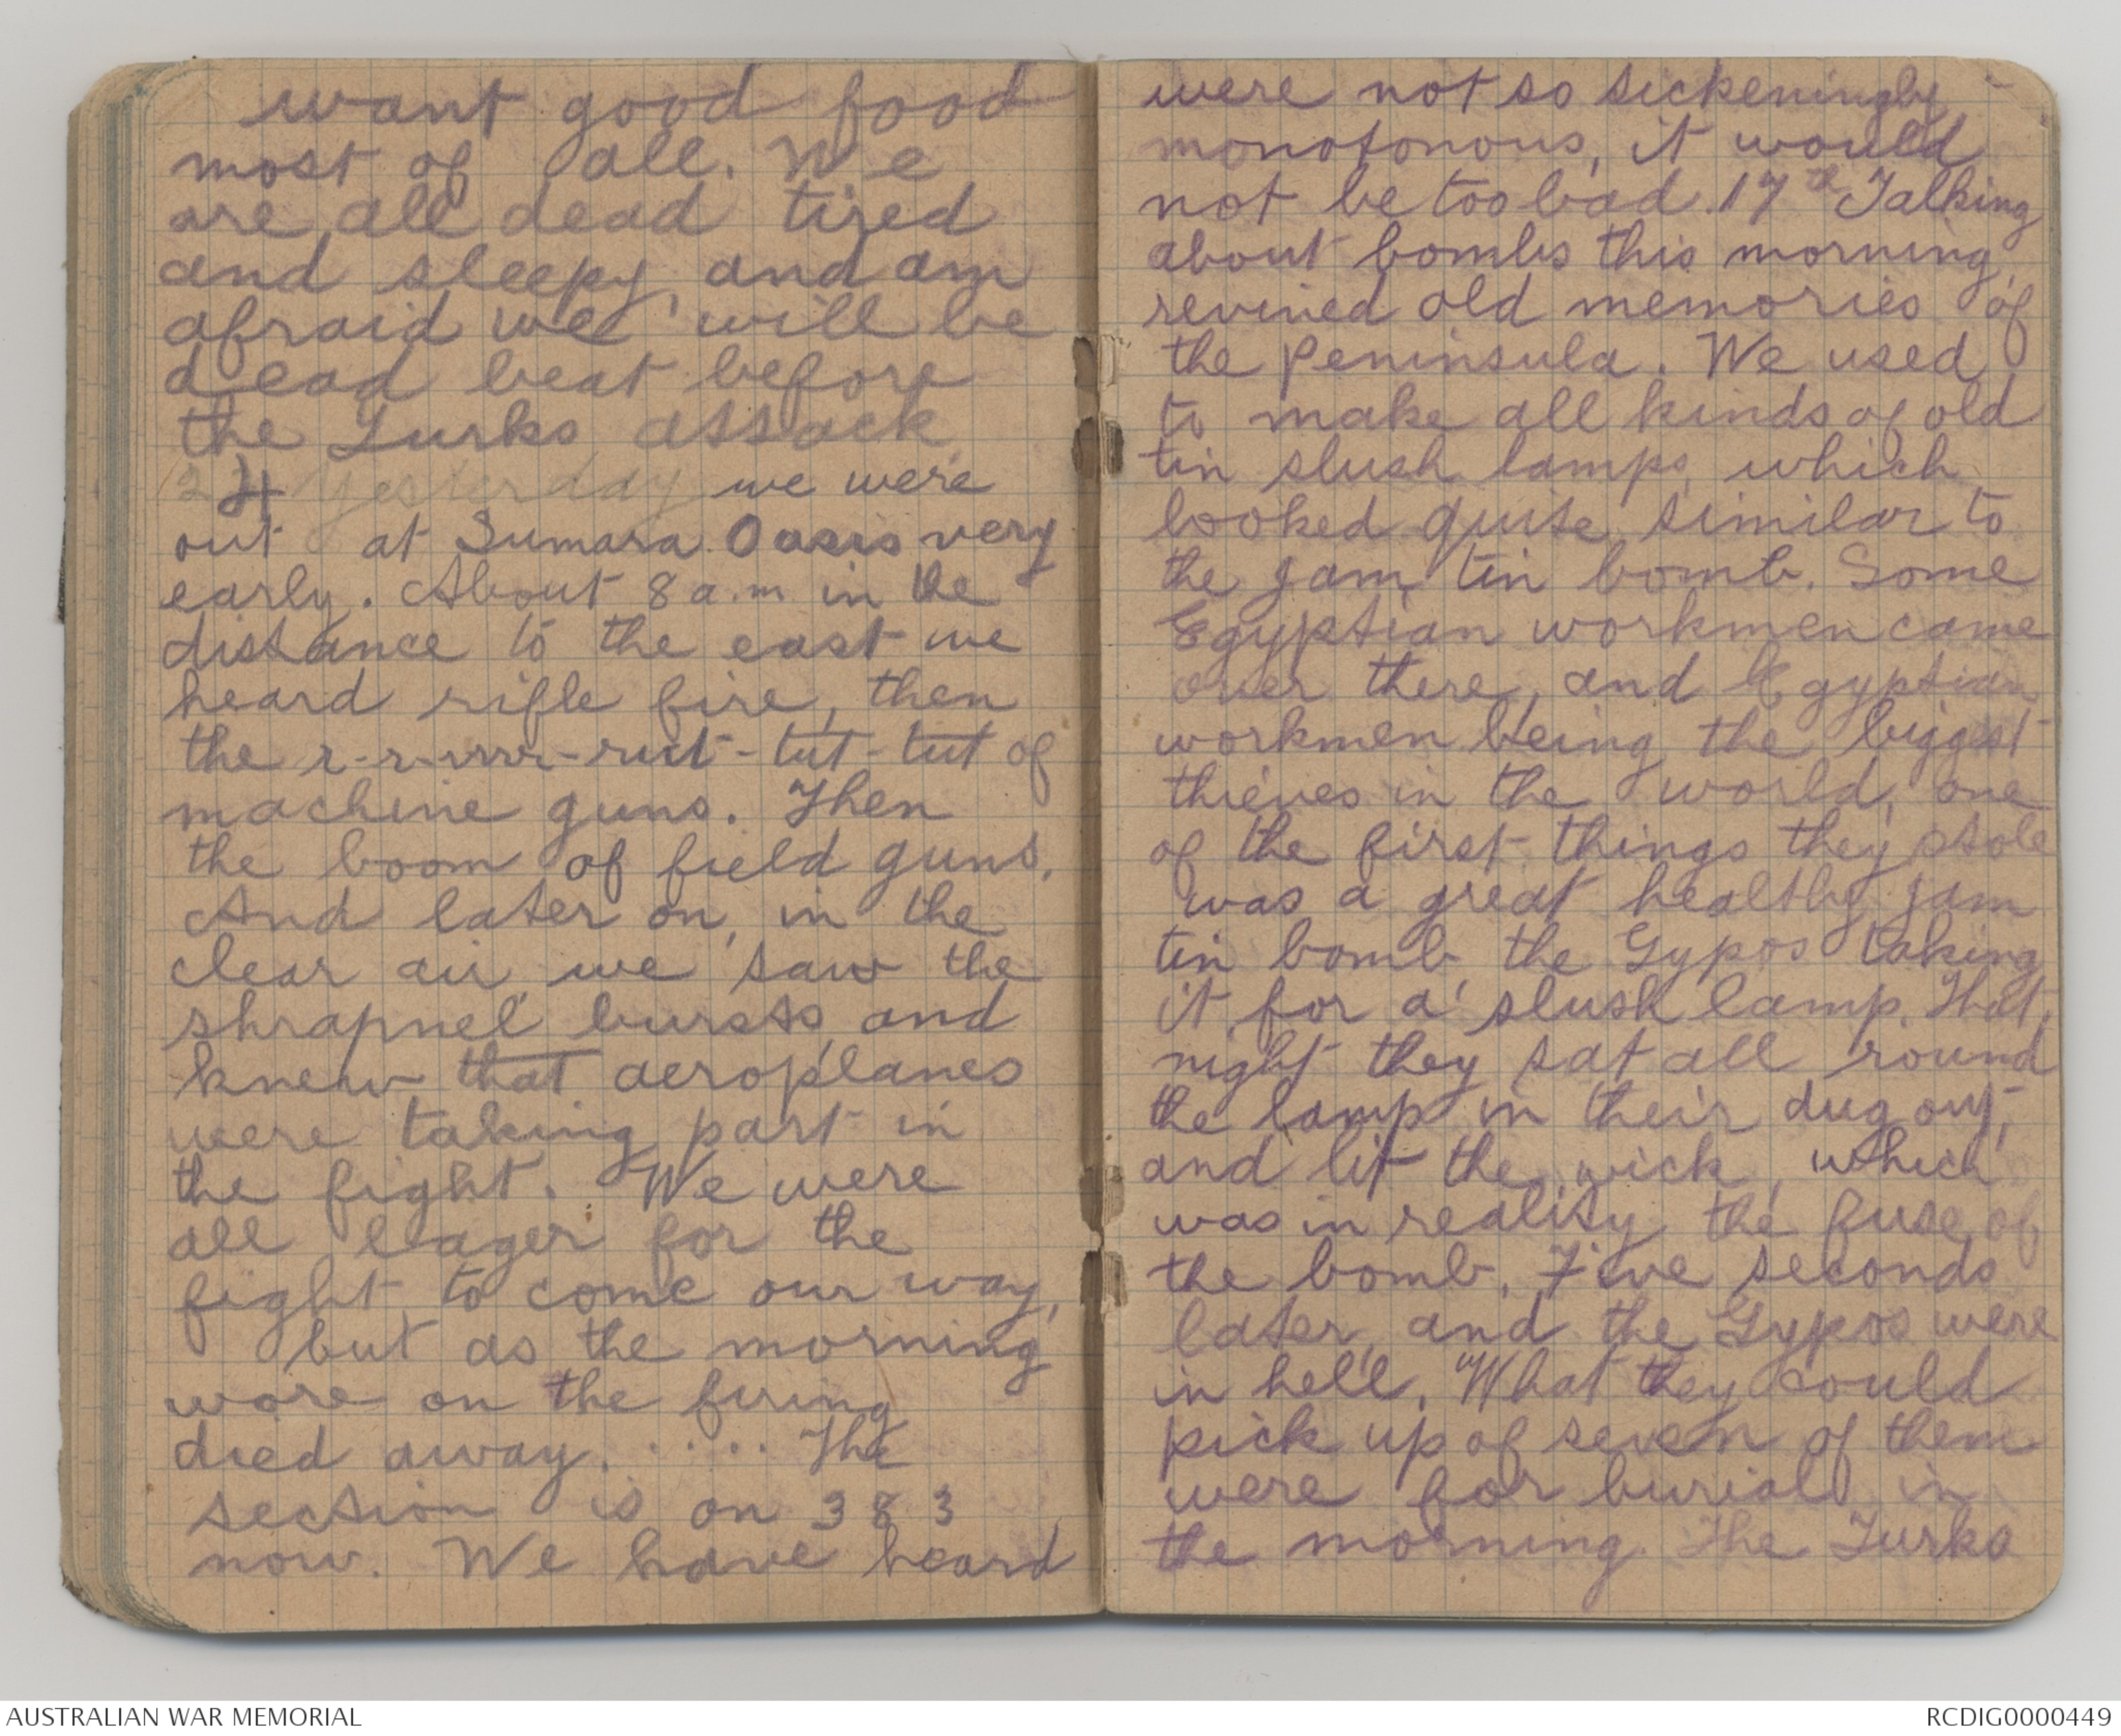 want good food
most of all. We
are all dead tired
and sleepy, and am
afraid we will be
dead beat before
the Turks attack
24 Yesterday we were
out at Sumara Oasis very
early. About 8 a.m in the
distance to the east we
heard rifle fire, then
the r-r-rrrr-rut-tut-tut of
machine guns. Then
the boom of field guns.
And later on, in the
clear air, we saw the
shrapnel bursts, and
knew that aeroplanes
were taking part in
the fight. We were
all eager for the
fight to come our way,
but as the morning
wore on the firing
died away. .... The
section is on 383
now. We have heard
were not so sickeningly
monotonous, it would
not be too bad. 17th Talking
about bombs this morning,
revived old memories of
the Peninsula. We used
to make all kinds of old
tin slush lamps, which
looked quite similar to
the jam tin bomb. Some
Egyptian workmen came
over there, and Egyptian
workmen being the biggest
thieves in the world, one
of the first things they stole
was a great healthy jam
tin bomb, the Gypos taking
it for a slush lamp. That
night they sat all round
the lamp in their dug out,
and lit the wick, which
was in reality the fuse of
the bomb. Five seconds
later, and the Gypos were
in hell. What they could
pick up of seven of them
were for burial in
the morning. The Turks
AUSTRALIAN WAR MEMORIAL
RCDIG0000449